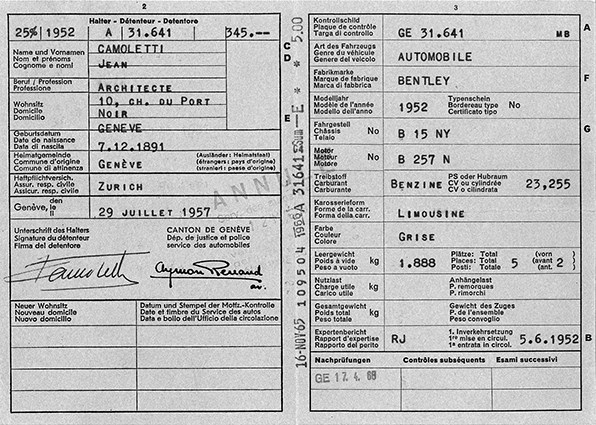 2
Halter - Détenteur - Detentore
25% 1952 A 31.641 345.--
Name und Vornamen
Nom et prénoms
Cognome e nomi
CAMOLETTI
JEAN
Beruf / Profession
Professione
ARCHITECTE
Wohnsitz
Domicile
Domicilio
10, CH. DU PORT
NOIR
GENEVE
Geburtsdatum
Date de naissance
Data di nascita
7.12.1891
Heimatgemeinde
Commune d'origine
Comune di attinenza
GENÈVE
(Ausländer: Heimatstaat)
(étrangers: pays d'origine)
(stranieri: paese d'origine)
Haftpflichtversich.
Assur. resp. civile
Assicur. resp. civile
ZURICH
Genève, den
le
li
29 JUILLET 1957
Unterschrift des Halters
Signature du détenteur
Firma del detentore
CANTON DE GENÈVE
Dép. de justice et police
service des automobiles
Camoletti
Neuer Wohnsitz
Nouveau domicile
Nuovo domicilio
Datum und Stempel der Motfz.-Kontrolle
Date et timbre du Service des autos
Data e bollo dell'Ufficio della circolazione
C
D
E
16-NOV-65 109504 1966 A 31641 E * * 5,00
3
Kontrollschild
Plaque de contrôle
Targa di controllo
GE 31.641 MB
A
Art des Fahrzeugs
Genre du véhicule
Genere del veicolo
AUTOMOBILE
Fabrikmarke
Marque de fabrique
Marca di fabbrica
BENTLEY
F
Modelljahr
Année du modèle
Anno del modello
1952
Typenschein
Bordereau type No
Certificato tipo
Fahrgestell
Châssis No
Telaio
B 15 NY
G
Motor
Moteur No
Motore
B 257 N
Treibstoff
Carburant
Carburante
BENZINE
PS oder Hubraum
CV ou cylindrée
CV o cilindrata
23,255
Karosserieform
Forme de la carr.
Forma della carr.
LIMOUSINE
Farbe
Couleur
Colore
GRISE
Leergewicht
Poids à vide kg
Peso a vuoto
1.888
Plätze: Total
Places: Total 5
Posti: Totale
(vorn
(avant 2)
(ant.
Nutzlast
Charge utile kg
Carico utile
Anhängelast
P. remorques
P. rimorchi
Gesamtgewicht
Poids total kg
Peso totale
Gewicht des Zuges
P. de l'ensemble
Peso convoglio
Expertenbericht
Rapport d'expertise
Rapporto del perito
RJ
1. Inverkehrsetzung
1re mise en circul.
1a entrata in circol.
5.6.1952
B
Nachprüfungen Contrôles subséquents Esami successivi
GE 17. 4. 68